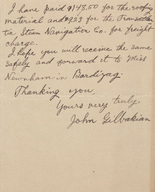 I have paid $149.00 for the roofing
material and $9.53 for the Transocea
tic Steam Navigation Co. for freight
charge.
I hope you will receive the same
safely and forward it to Miss
Newnham in Bardizag.
Thanking you,
Yours very truly
John Gulbakian